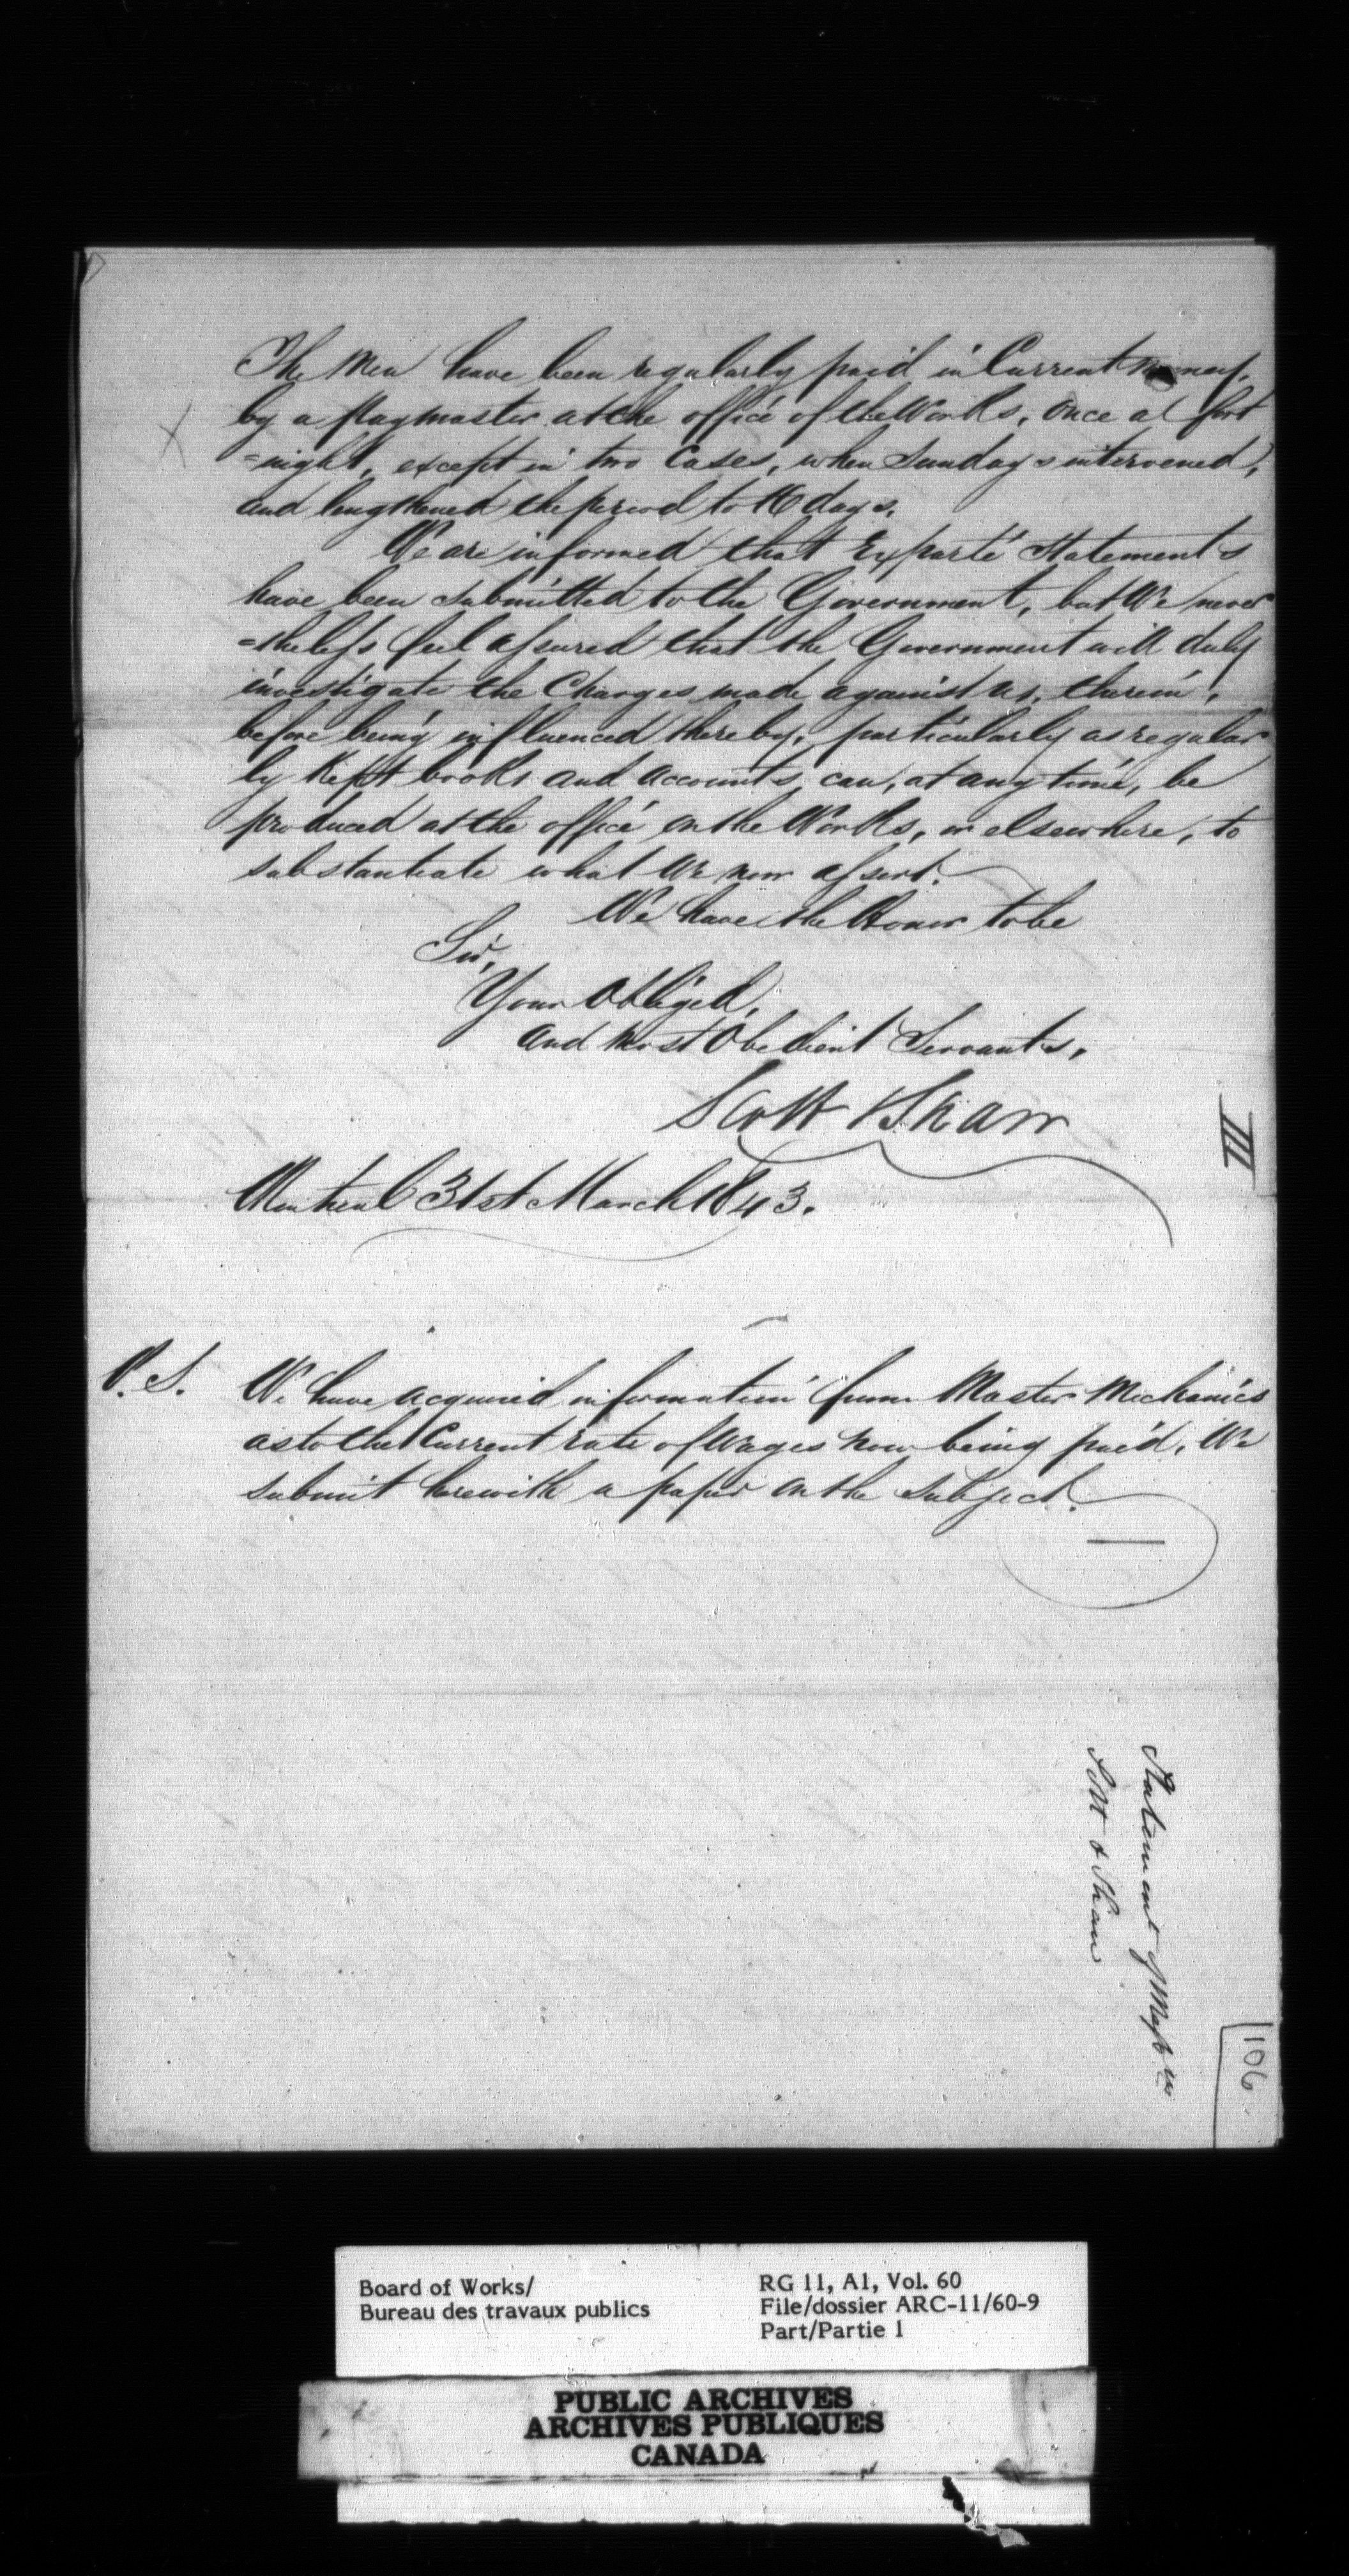 The Men have been regularly paid in Current money,
by a paymaster at the office of the Works, once a fort
=night, except in two Cases, when Sundays intervened,
and lengthened the period to 16 days.
We are informed that Exparté Statements
have been submitted to the Government, but We never
=theless feel assured that the Government will duly
investigate the Charges made against us, therein,
before being influenced thereby, particularly as regular
ly Kept books and accounts, can, at any time, be
produced at the office on the Works, or elsewhere, to
substantiate what we now assert.
We have the Honor to be
Sir,
Your Obliged,
and most Obedient Servants,
Scott & Shaw
Montreal 31st March 1843.
III
P.S. We have acquired information from Master Mechanics
as to the Current rate of Wages now being paid, We
submit herewith a paper on the Subject.
Statement of Messrs
Scott & Shaw
106
Board of Works/
Bureau des travaux publics
RG 11, A1, Vol. 60
File/dossier ARC-11/60-9
Part/Partie 1
PUBLIC ARCHIVES
ARCHIVES PUBLIQUES
CANADA